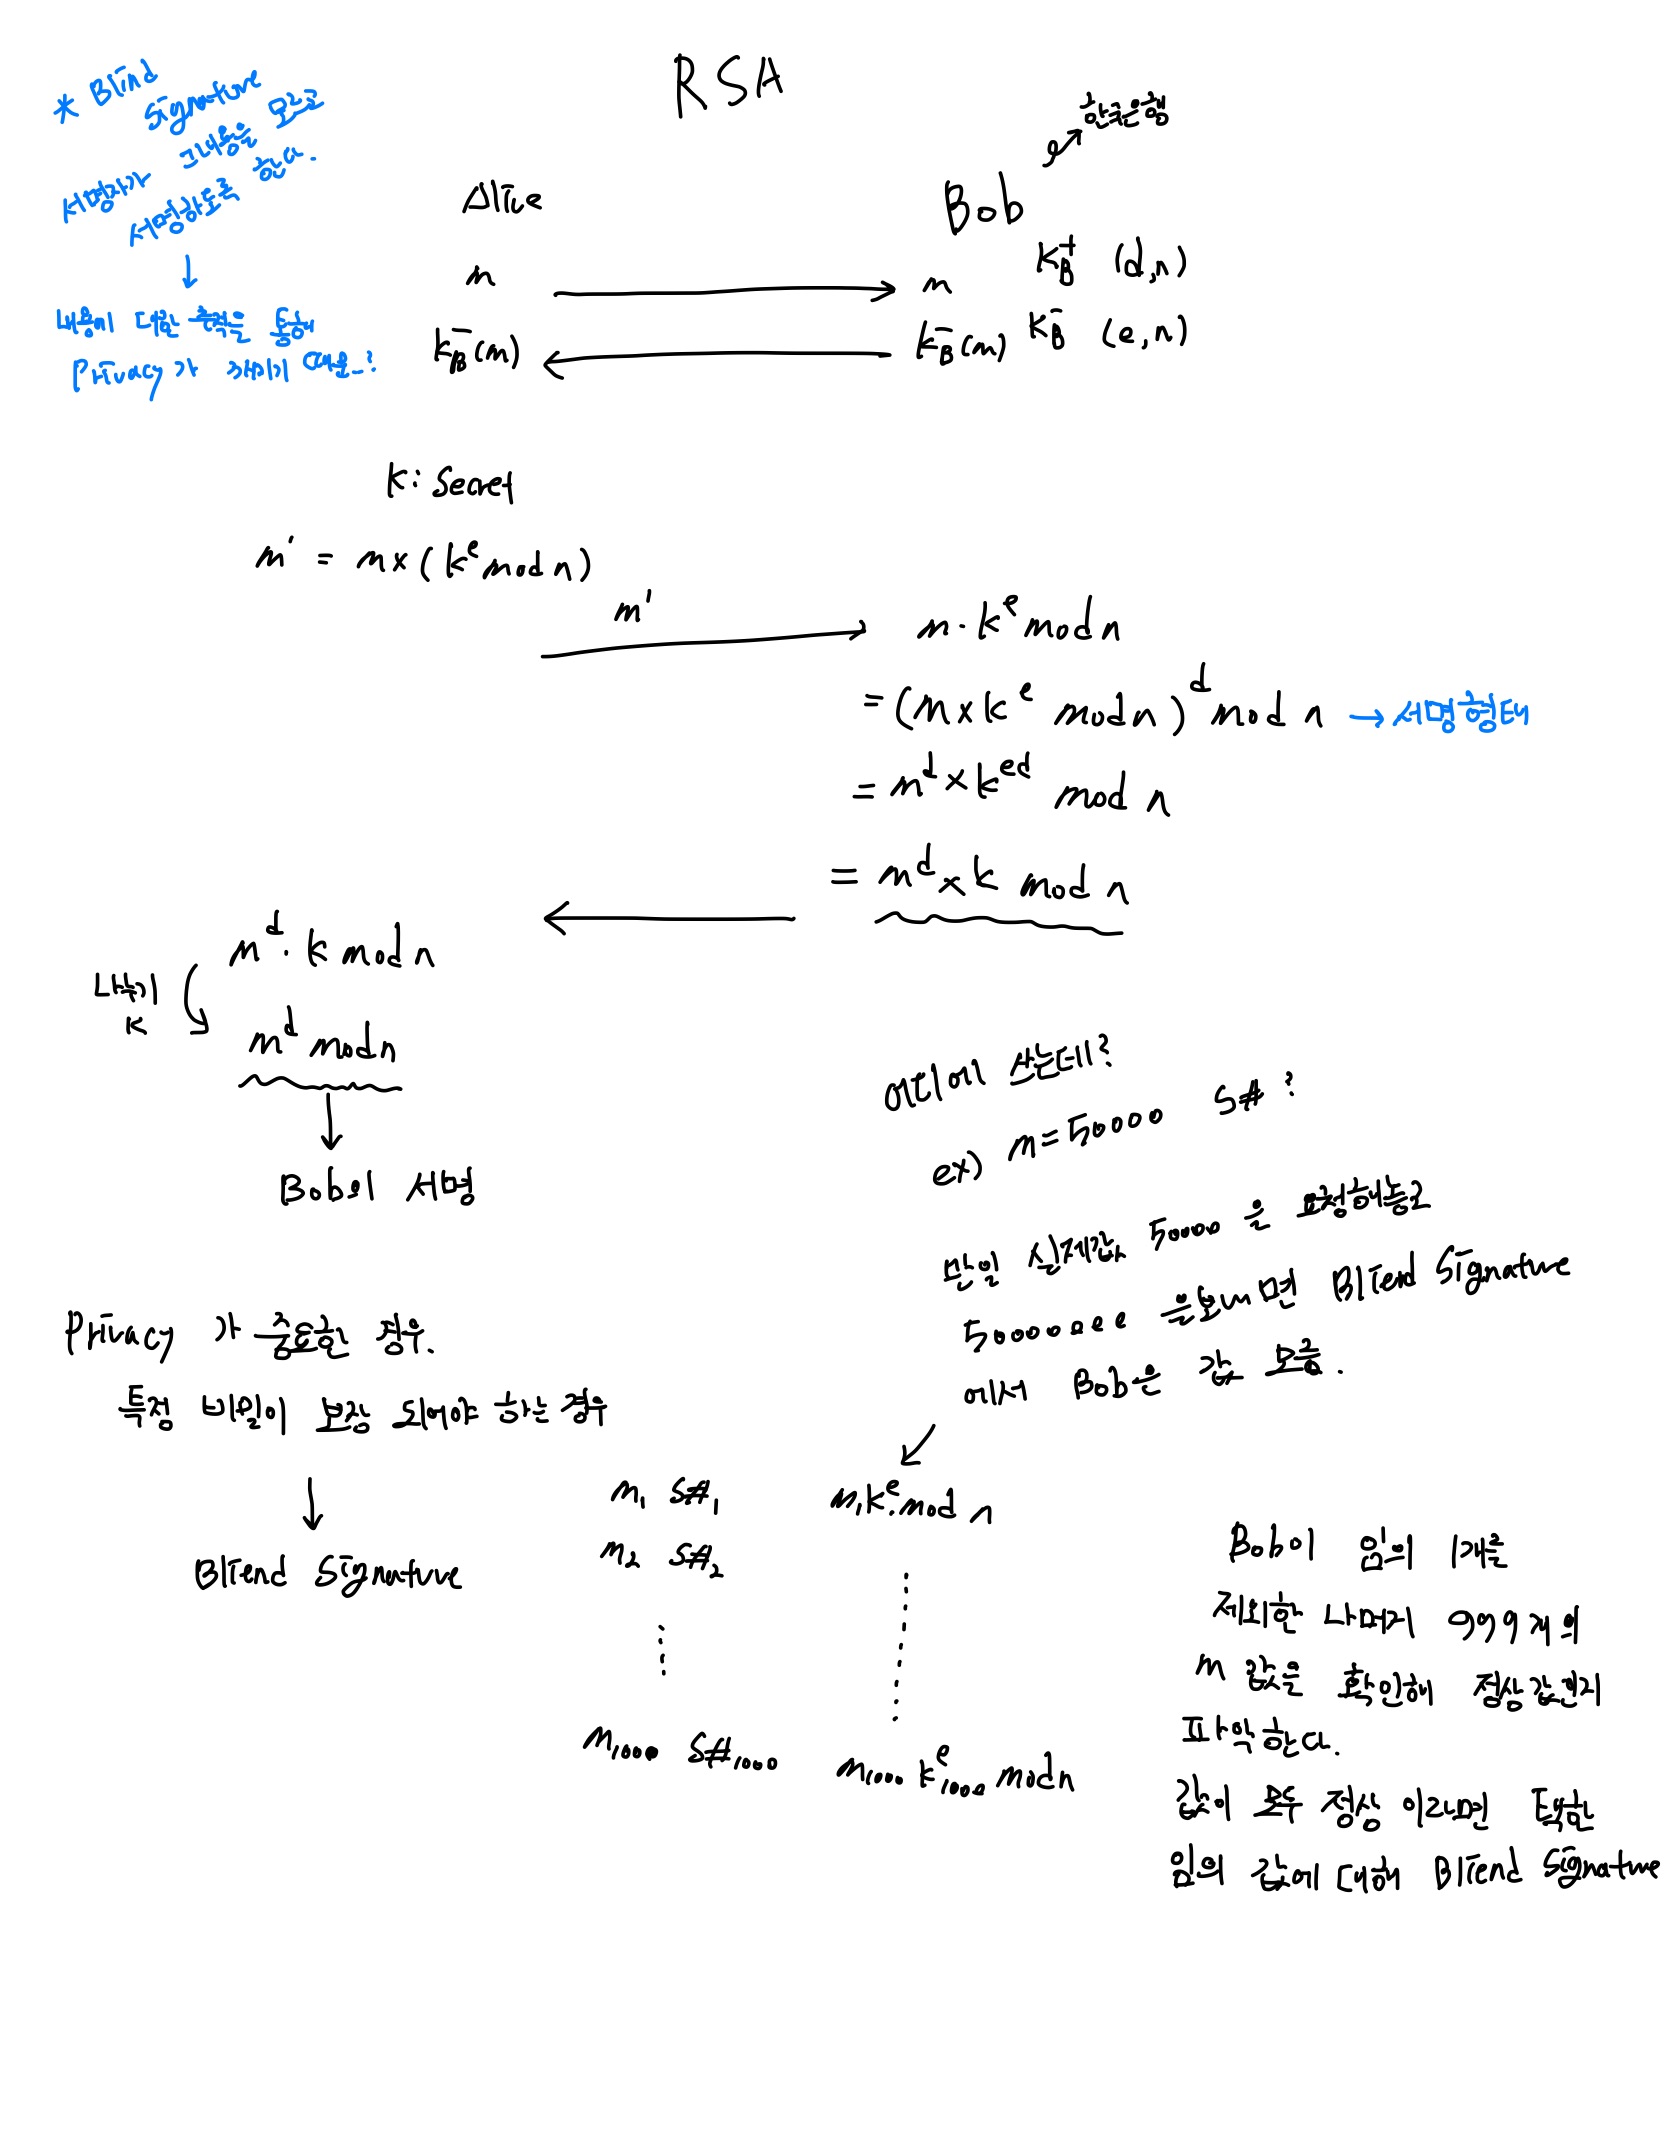 RSA
* Blind
Signature
서명자가 그내용을 모르고
서명하도록 한다.
↓
내용에 대한 추적을 통해
Privacy가 깨지기 때문..?
Alice
Bob
한국은행
m → m K_B^+ (d,n)
K_B^-(m) ← K_B^-(m) K_B^- (e,n)
K: Secret
m' = m×(k^e mod n)
m' →
m·k^e mod n
= (m×k^e mod n)^d mod n → 서명형태
= m^d × k^ed mod n
= m^d × k mod n
←
m^d · k mod n
나누기
K
m^d mod n
↓
Bob의 서명
어디에 쓰는데?
ex) m=50000 S# ?
만일 실제값 50000 을 요청해놓고
50000000 을보내면 Bliend Signature
에서 Bob은 값 모름.
Privacy 가 중요한 경우.
특정 비밀이 보장 되어야 하는 경우
↓
Bliend Signature
m₁ S#₁ m₁k^e mod n
m₂ S#₂
m₁₀₀₀ S#₁₀₀₀ m₁₀₀₀ k^e₁₀₀₀ mod n
Bob이 임의 1개를
제외한 나머지 999개의
m 값을 확인해 정상값인지
파악한다.
값이 모두 정상 이라면 택한
임의 값에 대해 Bliend Signature